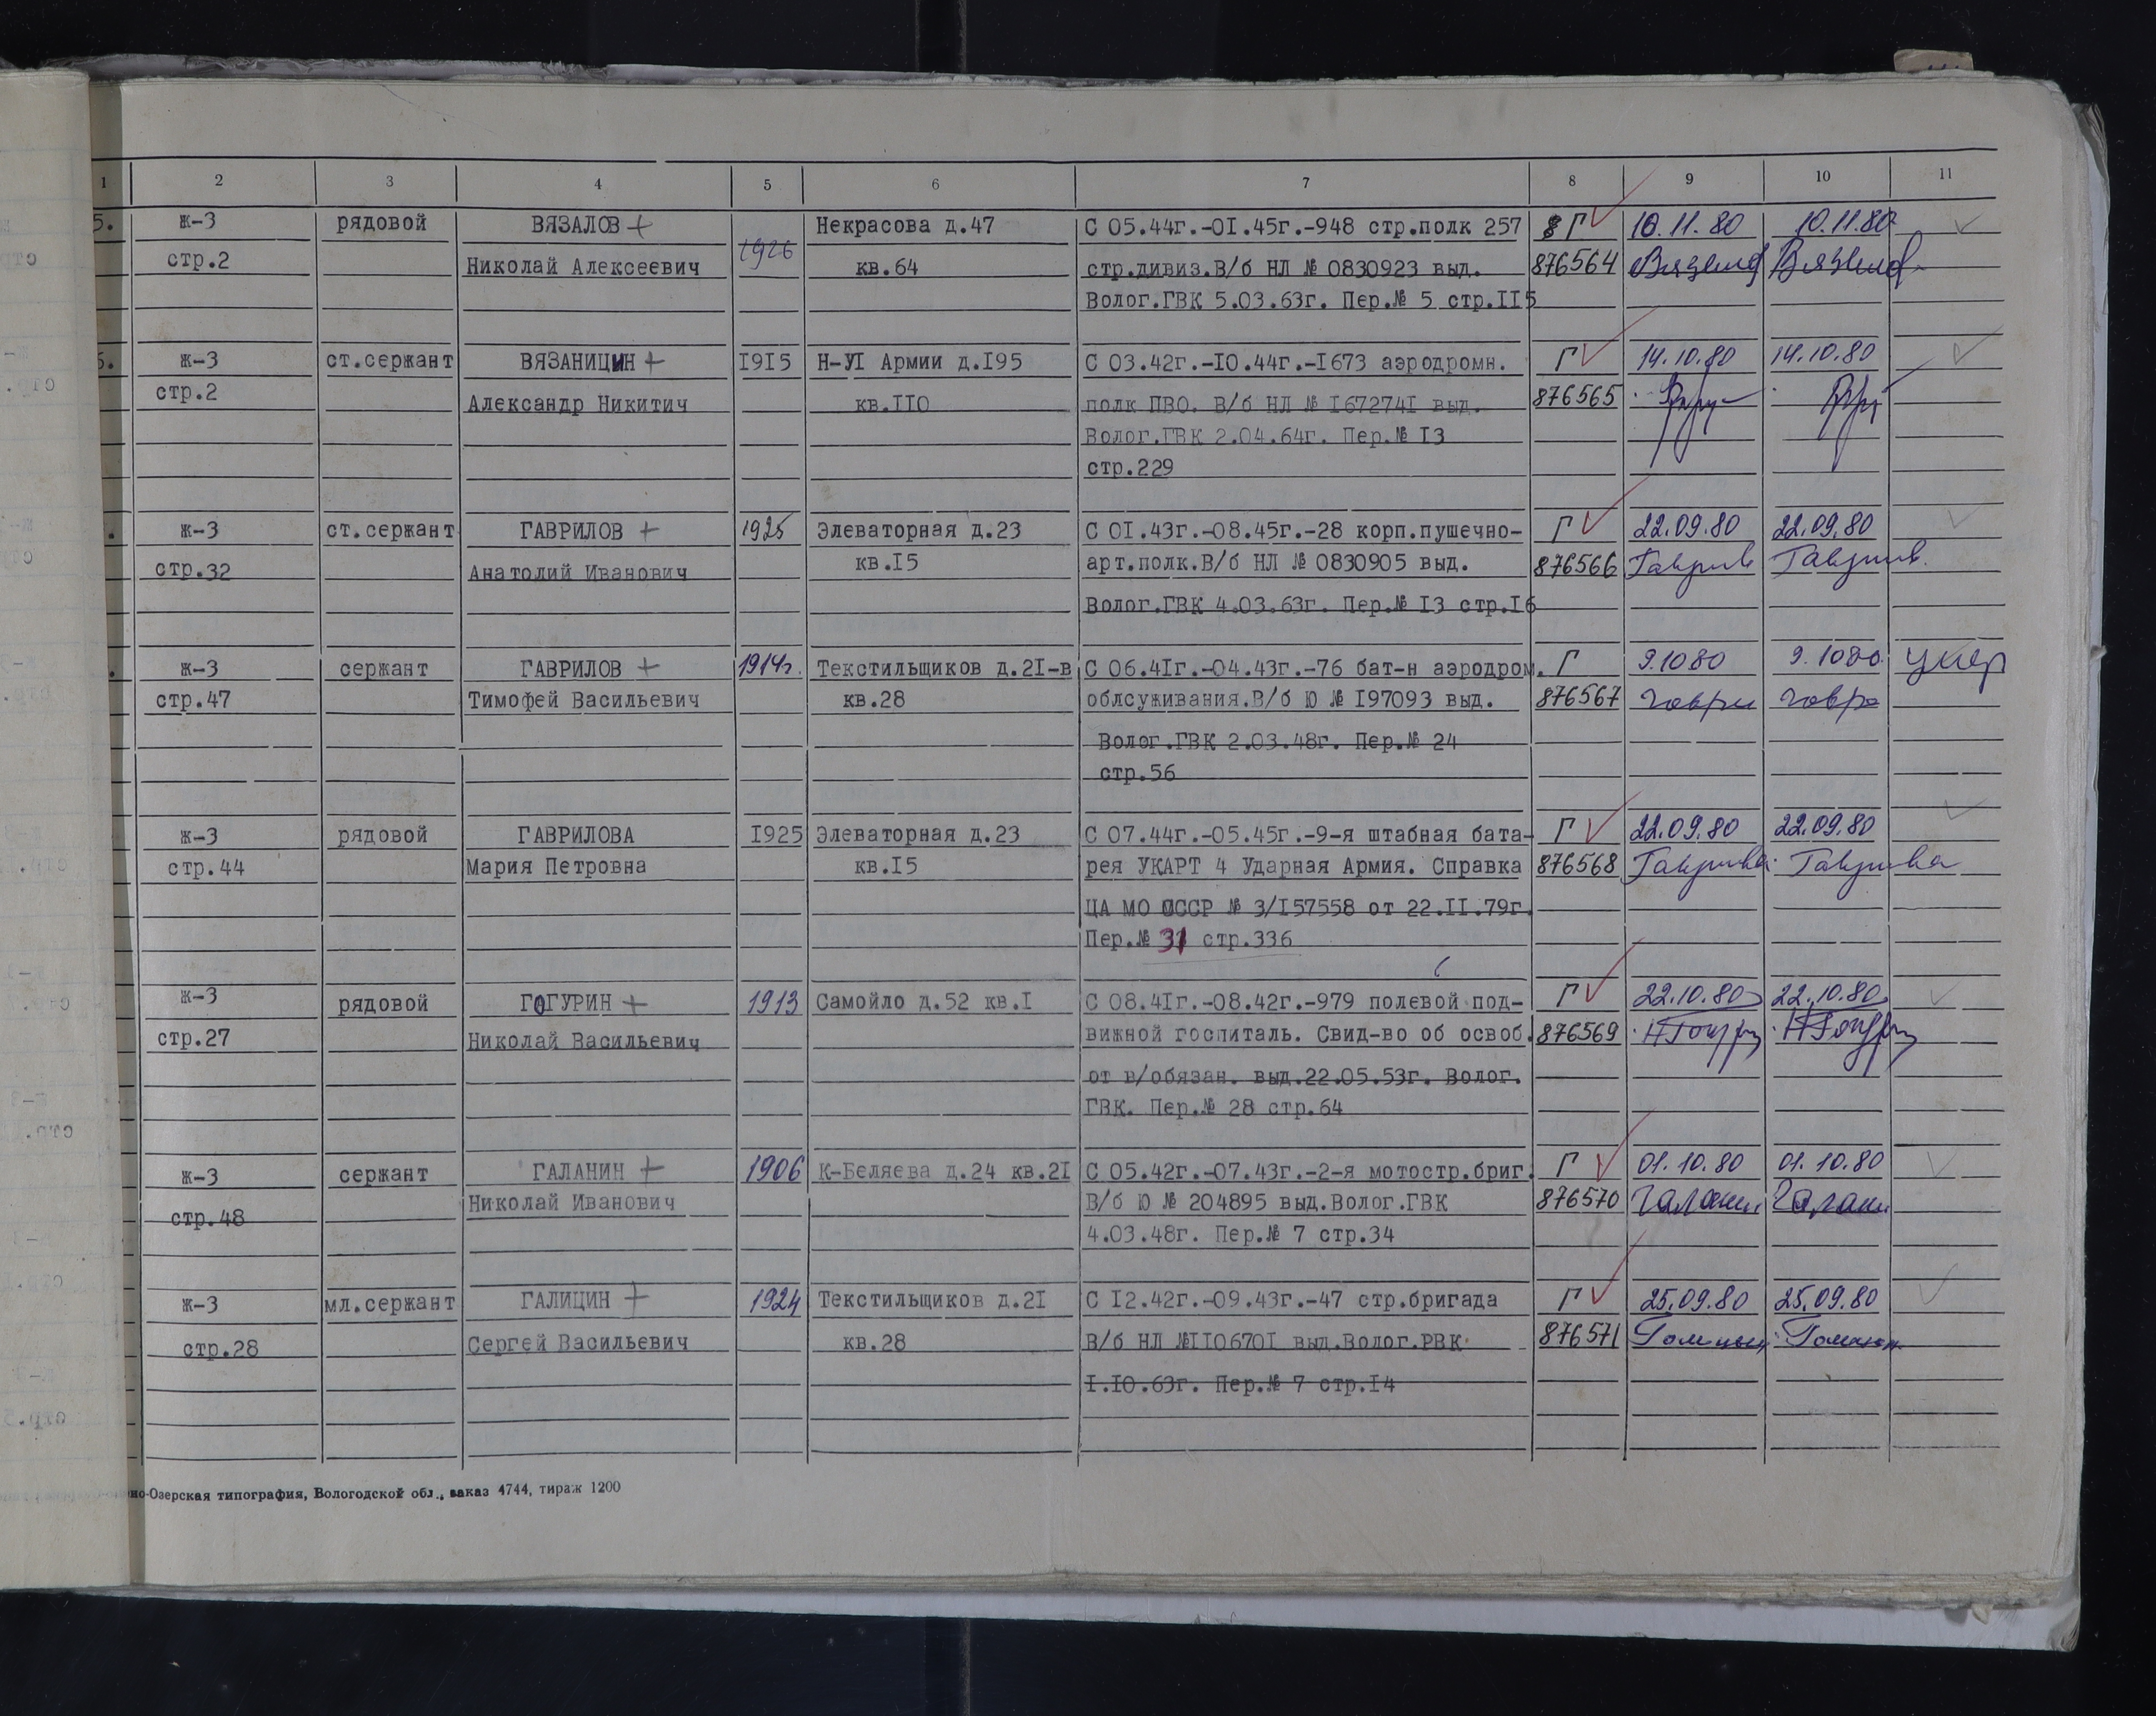 1 2 3 4 5 6 7 8 9 10 11
5. ж-3 рядовой ВЯЗАЛОВ + 1926 Некрасова д.47 С 05.44г.-01.45г.-948 стр.полк 257 Г 10.11.80 10.11.80
стр.2 Николай Алексеевич кв.64 стр.дивиз.В/б НЛ № 0830923 выд. 876564
Волог.ГВК 5.03.63г. Пер.№ 5 стр.II5
ж-3 ст.сержант ВЯЗАНИЦИН + I9I5 Н-УI Армии д.I95 С 03.42г.-I0.44г.-I673 аэродромн. Г 14.10.80 14.10.80
стр.2 Александр Никитич кв.II0 полк ПВО. В/б НЛ № I67274I выд. 876565
Волог.ГВК 2.04.64г. Пер.№ I3
стр.229
ж-3 ст.сержант ГАВРИЛОВ + 1925 Элеваторная д.23 С 0I.43г.-08.45г.-28 корп.пушечно- Г 22.09.80 22.09.80
стр.32 Анатолий Иванович кв.I5 арт.полк.В/б НЛ № 0830905 выд. 876566
Волог.ГВК 4.03.63г. Пер.№ I3 стр.I6
ж-3 сержант ГАВРИЛОВ + 1914г. Текстильщиков д.2I-в С 06.4Iг.-04.43г.-76 бат-н аэродром. Г 9.1080 9.1080
стр.47 Тимофей Васильевич кв.28 облсуживания.В/б Ю № I97093 выд. 876567
Волог.ГВК 2.03.48г. Пер.№ 24
стр.56
ж-3 рядовой ГАВРИЛОВА I925 Элеваторная д.23 С 07.44г.-05.45г.-9-я штабная бата- Г 22.09.80 22.09.80
стр.44 Мария Петровна кв.I5 рея УКАРТ 4 Ударная Армия. Справка 876568
ЦА МО СССР № 3/I57558 от 22.II.79г.
Пер.№ 31 стр.336
ж-3 рядовой ГОГУРИН + 1913 Самойло д.52 кв.I С 08.4Iг.-08.42г.-979 полевой под- Г 22.10.80 22.10.80
стр.27 Николай Васильевич вижной госпиталь. Свид-во об освоб. 876569
от в/обязан. выд.22.05.53г. Волог.
ГВК. Пер.№ 28 стр.64
ж-3 сержант ГАЛАНИН + 1906 К-Беляева д.24 кв.2I С 05.42г.-07.43г.-2-я мотостр.бриг. Г 01.10.80 01.10.80
стр.48 Николай Иванович В/б Ю № 204895 выд.Волог.ГВК 876570
4.03.48г. Пер.№ 7 стр.34
ж-3 мл.сержант ГАЛИЦИН + 1924 Текстильщиков д.2I С I2.42г.-09.43г.-47 стр.бригада Г 25.09.80 25.09.80
стр.28 Сергей Васильевич кв.28 В/б НЛ №II0670I выд.Волог.РВК 876571
I.I0.63г. Пер.№ 7 стр.I4
но-Озерская типография, Вологодской обл., заказ 4744, тираж 1200